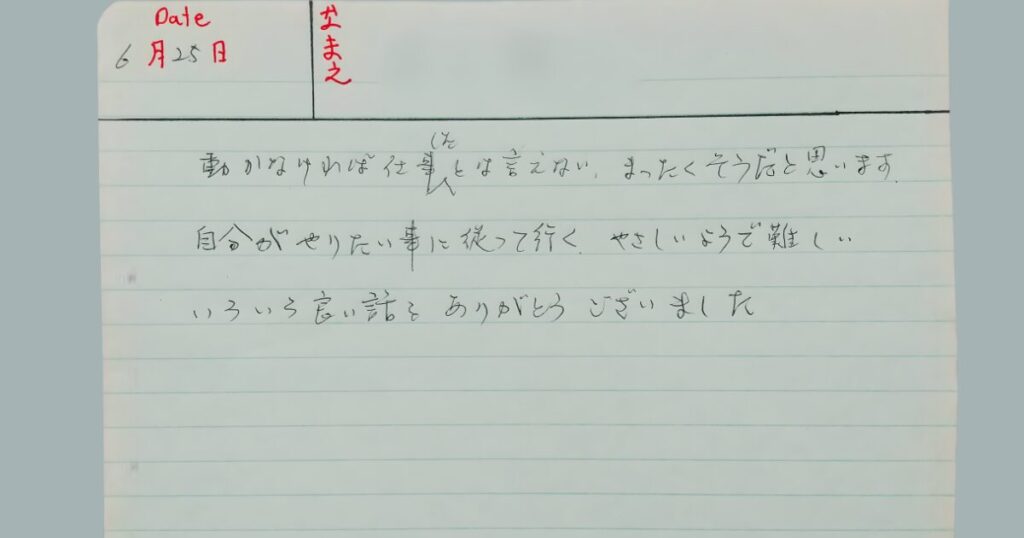 Date
6月25日
なまえ
動かなければ仕事したとは言えない、まったくそうだと思います。
自分がやりたい事に従って行く。やさしいようで難しい
いろいろ良い話を ありがとう ございました